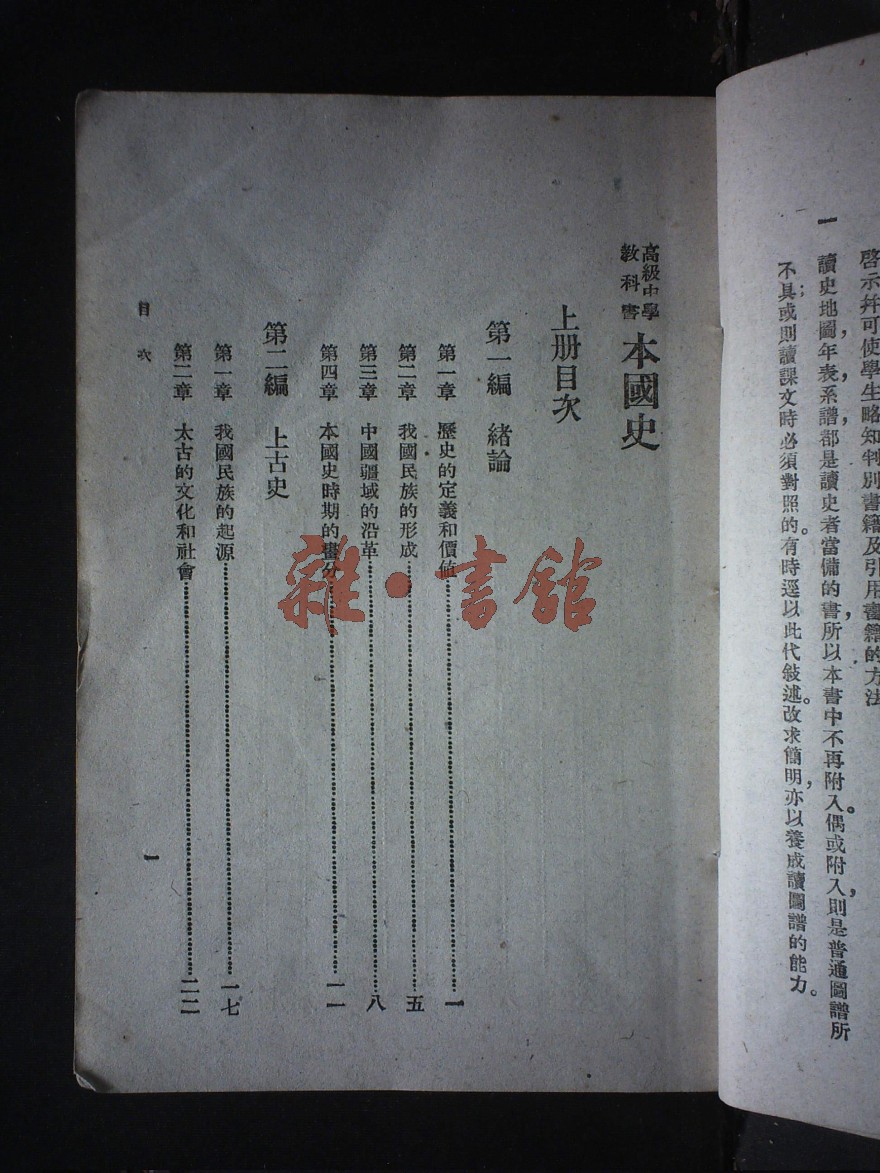 啓示幷可使學生略知判別書籍及引用書籍的方法
一　讀史地圖，年表，系譜，都是讀史者當備的書，所以本書中不再附入。偶或附入，則是普通圖譜所
不具；或則讀課文時必須對照的。有時逕以此代敍述。改求簡明，亦以養成讀圖譜的能力。
高級中學
教科書
本國史
上册目次
第一編　緒論
第一章　歷史的定義和價值……一
第二章　我國民族的形成……五
第三章　中國疆域的沿革……八
第四章　本國史時期的畫分……一一
第二編　上古史
第一章　我國民族的起源……一七
第二章　太古的文化和社會……二二
目次
一
雜·書館